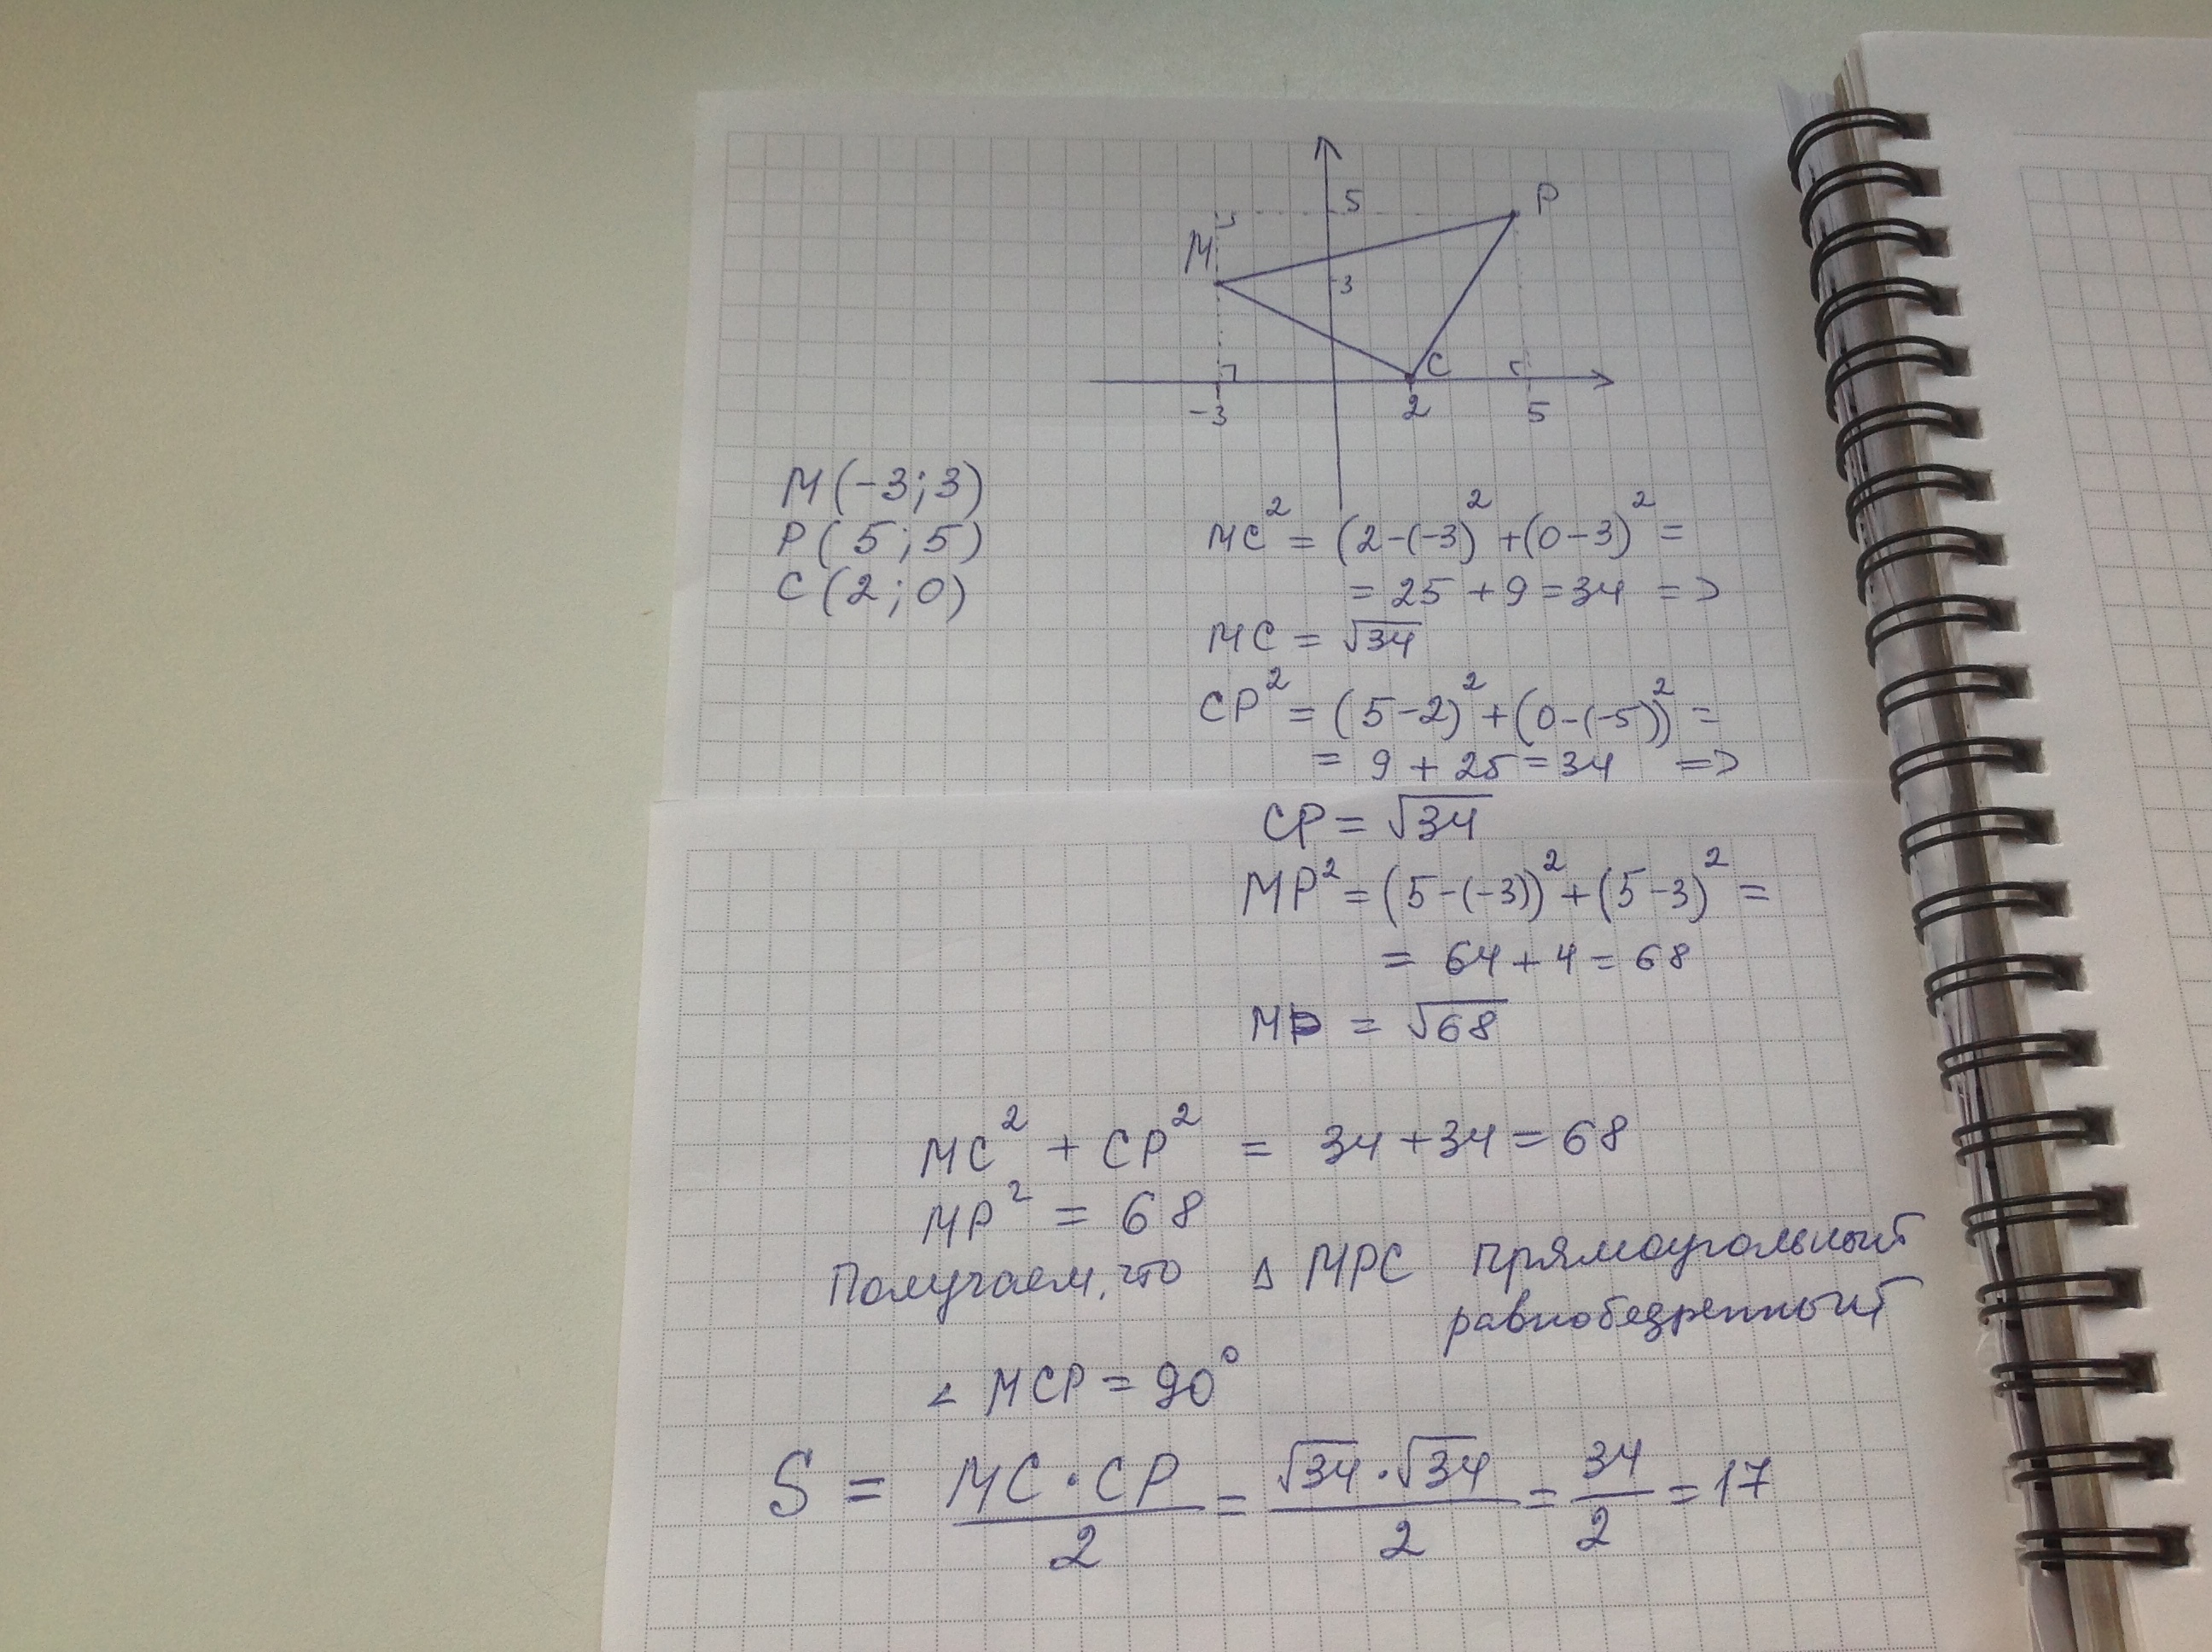 5
P
M
3
C
-3 2 5
M(-3;3)
P(5;5)
C(2;0)
MC² = (2-(-3)² +(0-3)² =
= 25 + 9 = 34 =>
MC = √34
CP² = (5-2)² + (0-(-5))² =
= 9 + 25 = 34 =>
CP = √34
MP² = (5-(-3))² + (5-3)² =
= 64 + 4 = 68
MP = √68
MC² + CP² = 34 + 34 = 68
MP² = 68
Получаем, что Δ MPC прямоугольный
равнобедренный
∠ MCP = 90°
S = MC · CP / 2 = √34 · √34 / 2 = 34 / 2 = 17